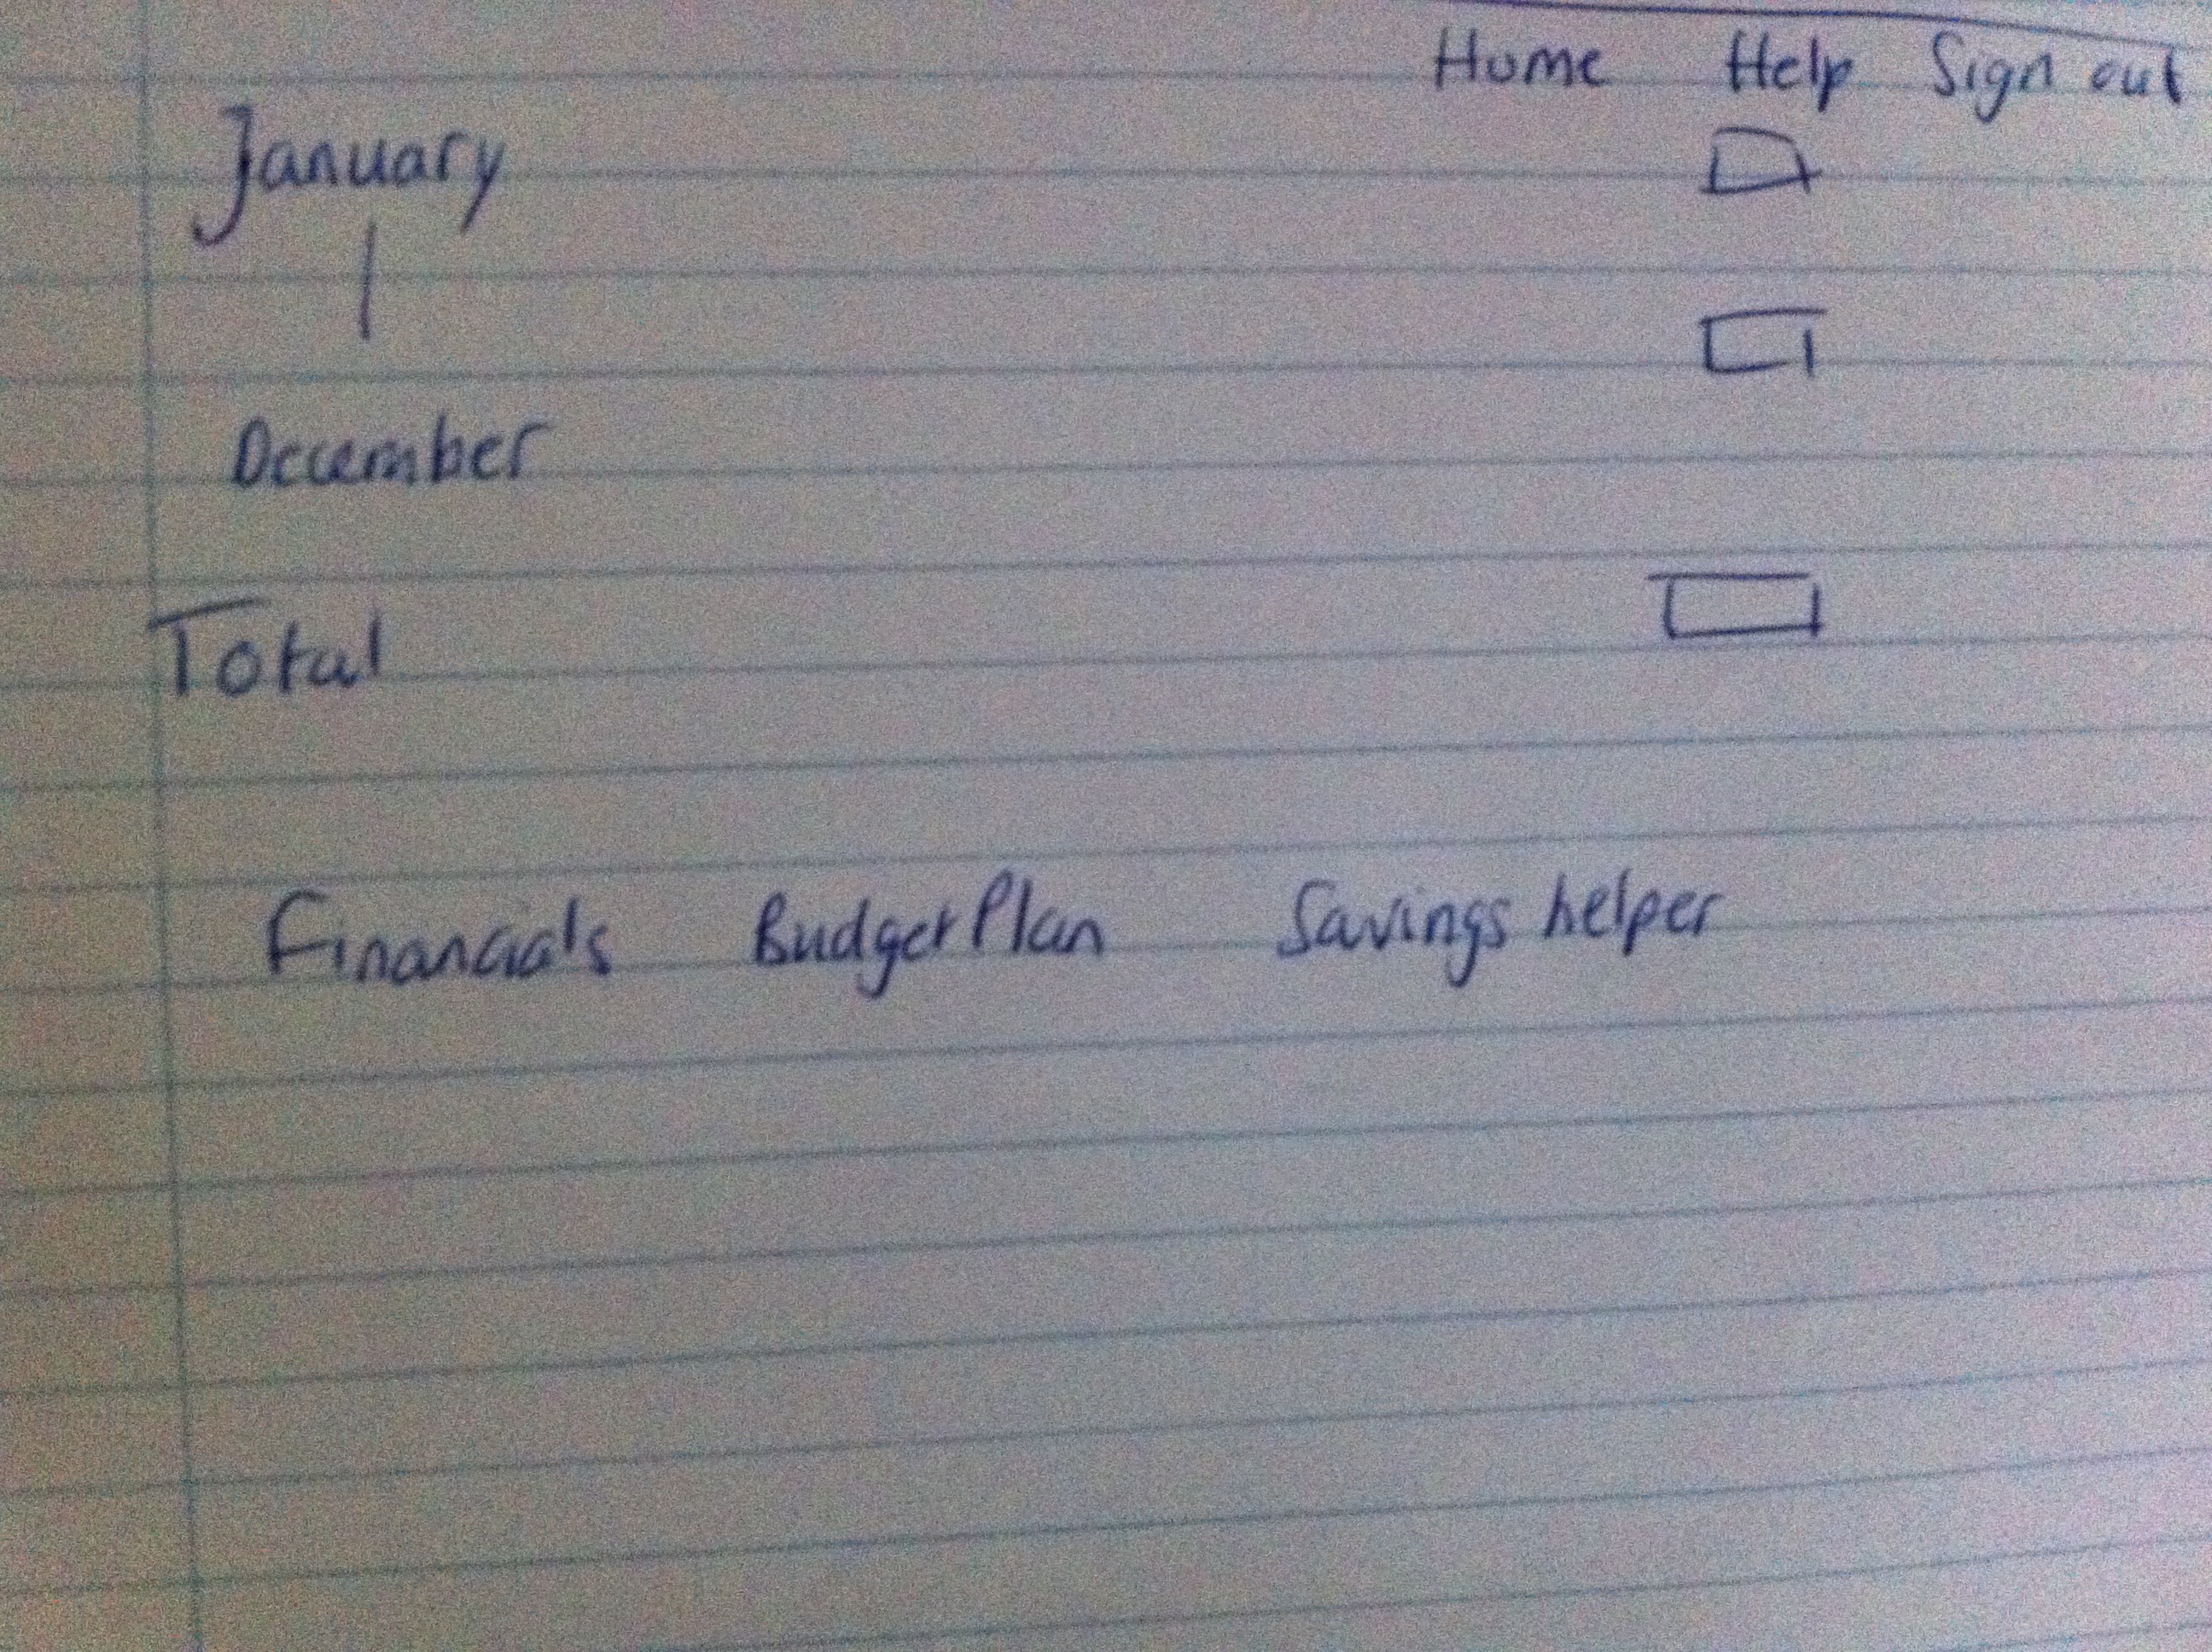 Home Help Sign out
January
December
Total
Financials Budget Plan Savings helper